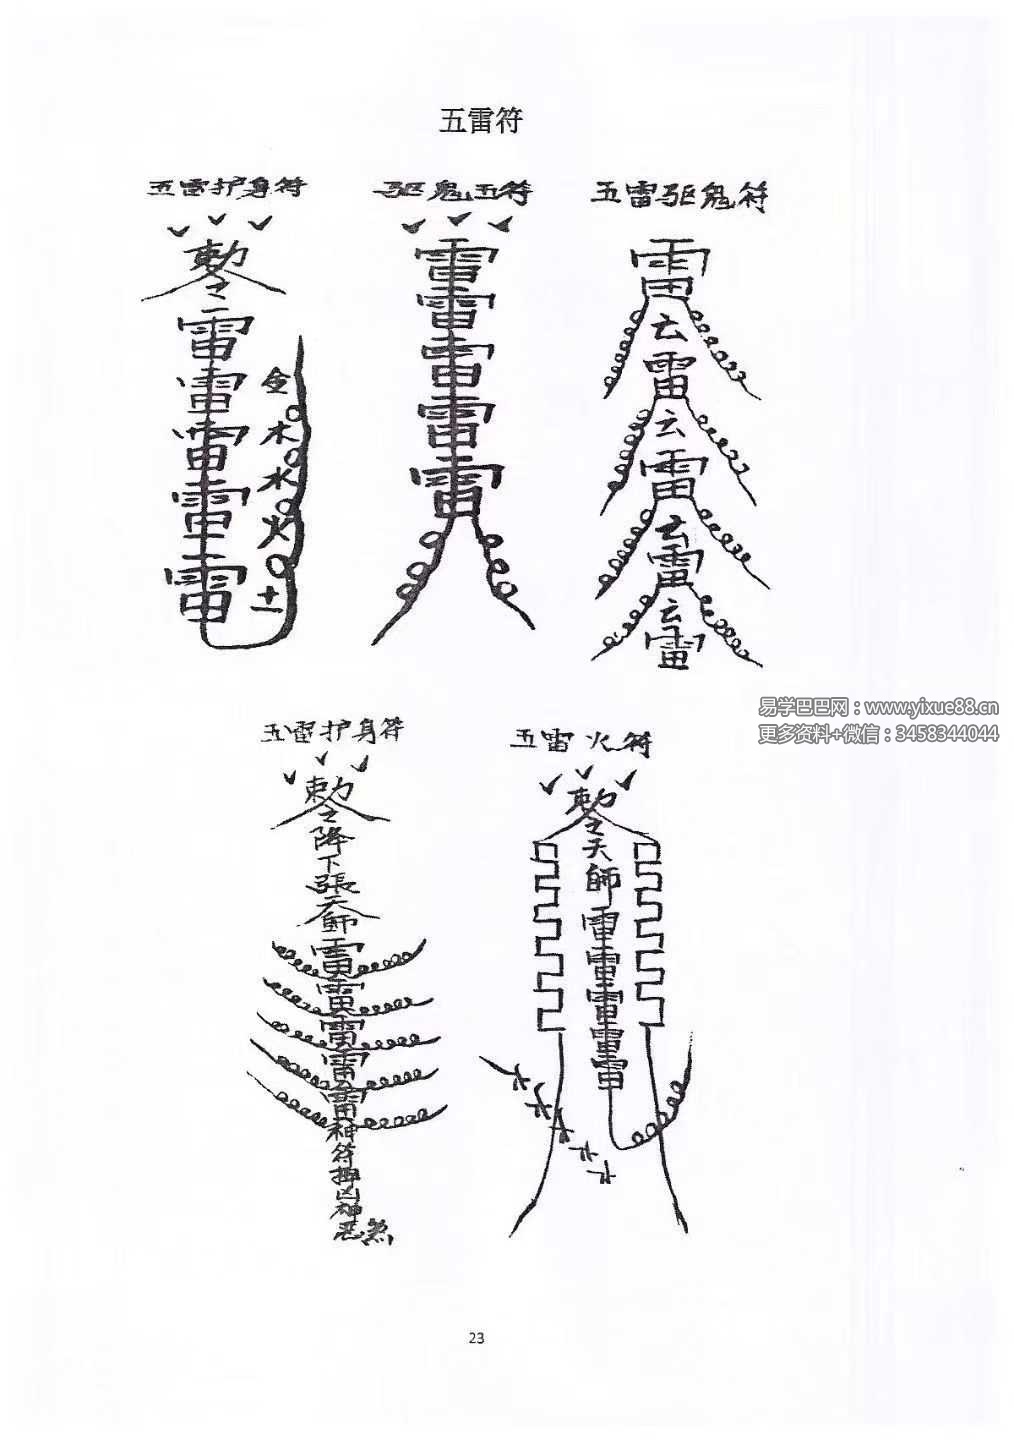 五雷符
五雷护身符
驱鬼五符
五雷驱鬼符
敕令
雷
雷
雷
雷
雷
金
木
水
火
土
雷
雷
雷
雷
雷
雷
云
雷
云
雷
云
雷
云
雷
易学巴巴网：www.yixue88.cn
更多资料+微信：3458344044
五雷护身符
五雷火符
敕令
降
下
張
天
師
雷
雷
雷
雷
雷
神
符
押
凶
神
恶煞
敕令
天
師
雷
雷
雷
雷
雷
火
火
火
火
火
23